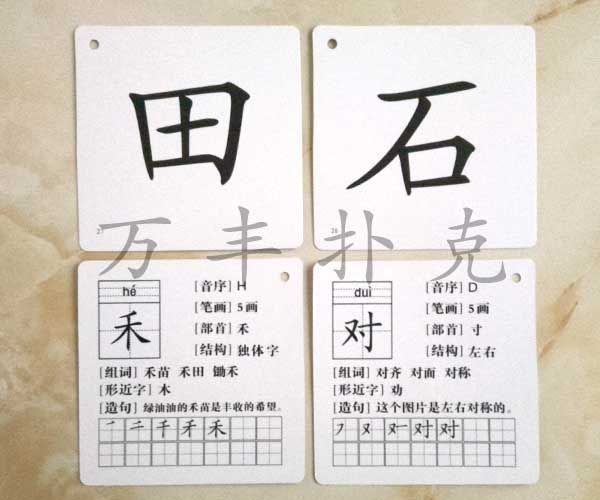 田
27
石
26
万丰扑克
hé
禾
[音序] H
[笔画] 5画
[部首] 禾
[结构] 独体字
[组词] 禾苗 禾田 锄禾
[形近字] 木
[造句] 绿油油的禾苗是丰收的希望。
一 二 千 禾 禾
duì
对
[音序] D
[笔画] 5画
[部首] 寸
[结构] 左右
[组词] 对齐 对面 对称
[形近字] 劝
[造句] 这个图片是左右对称的。
对 对